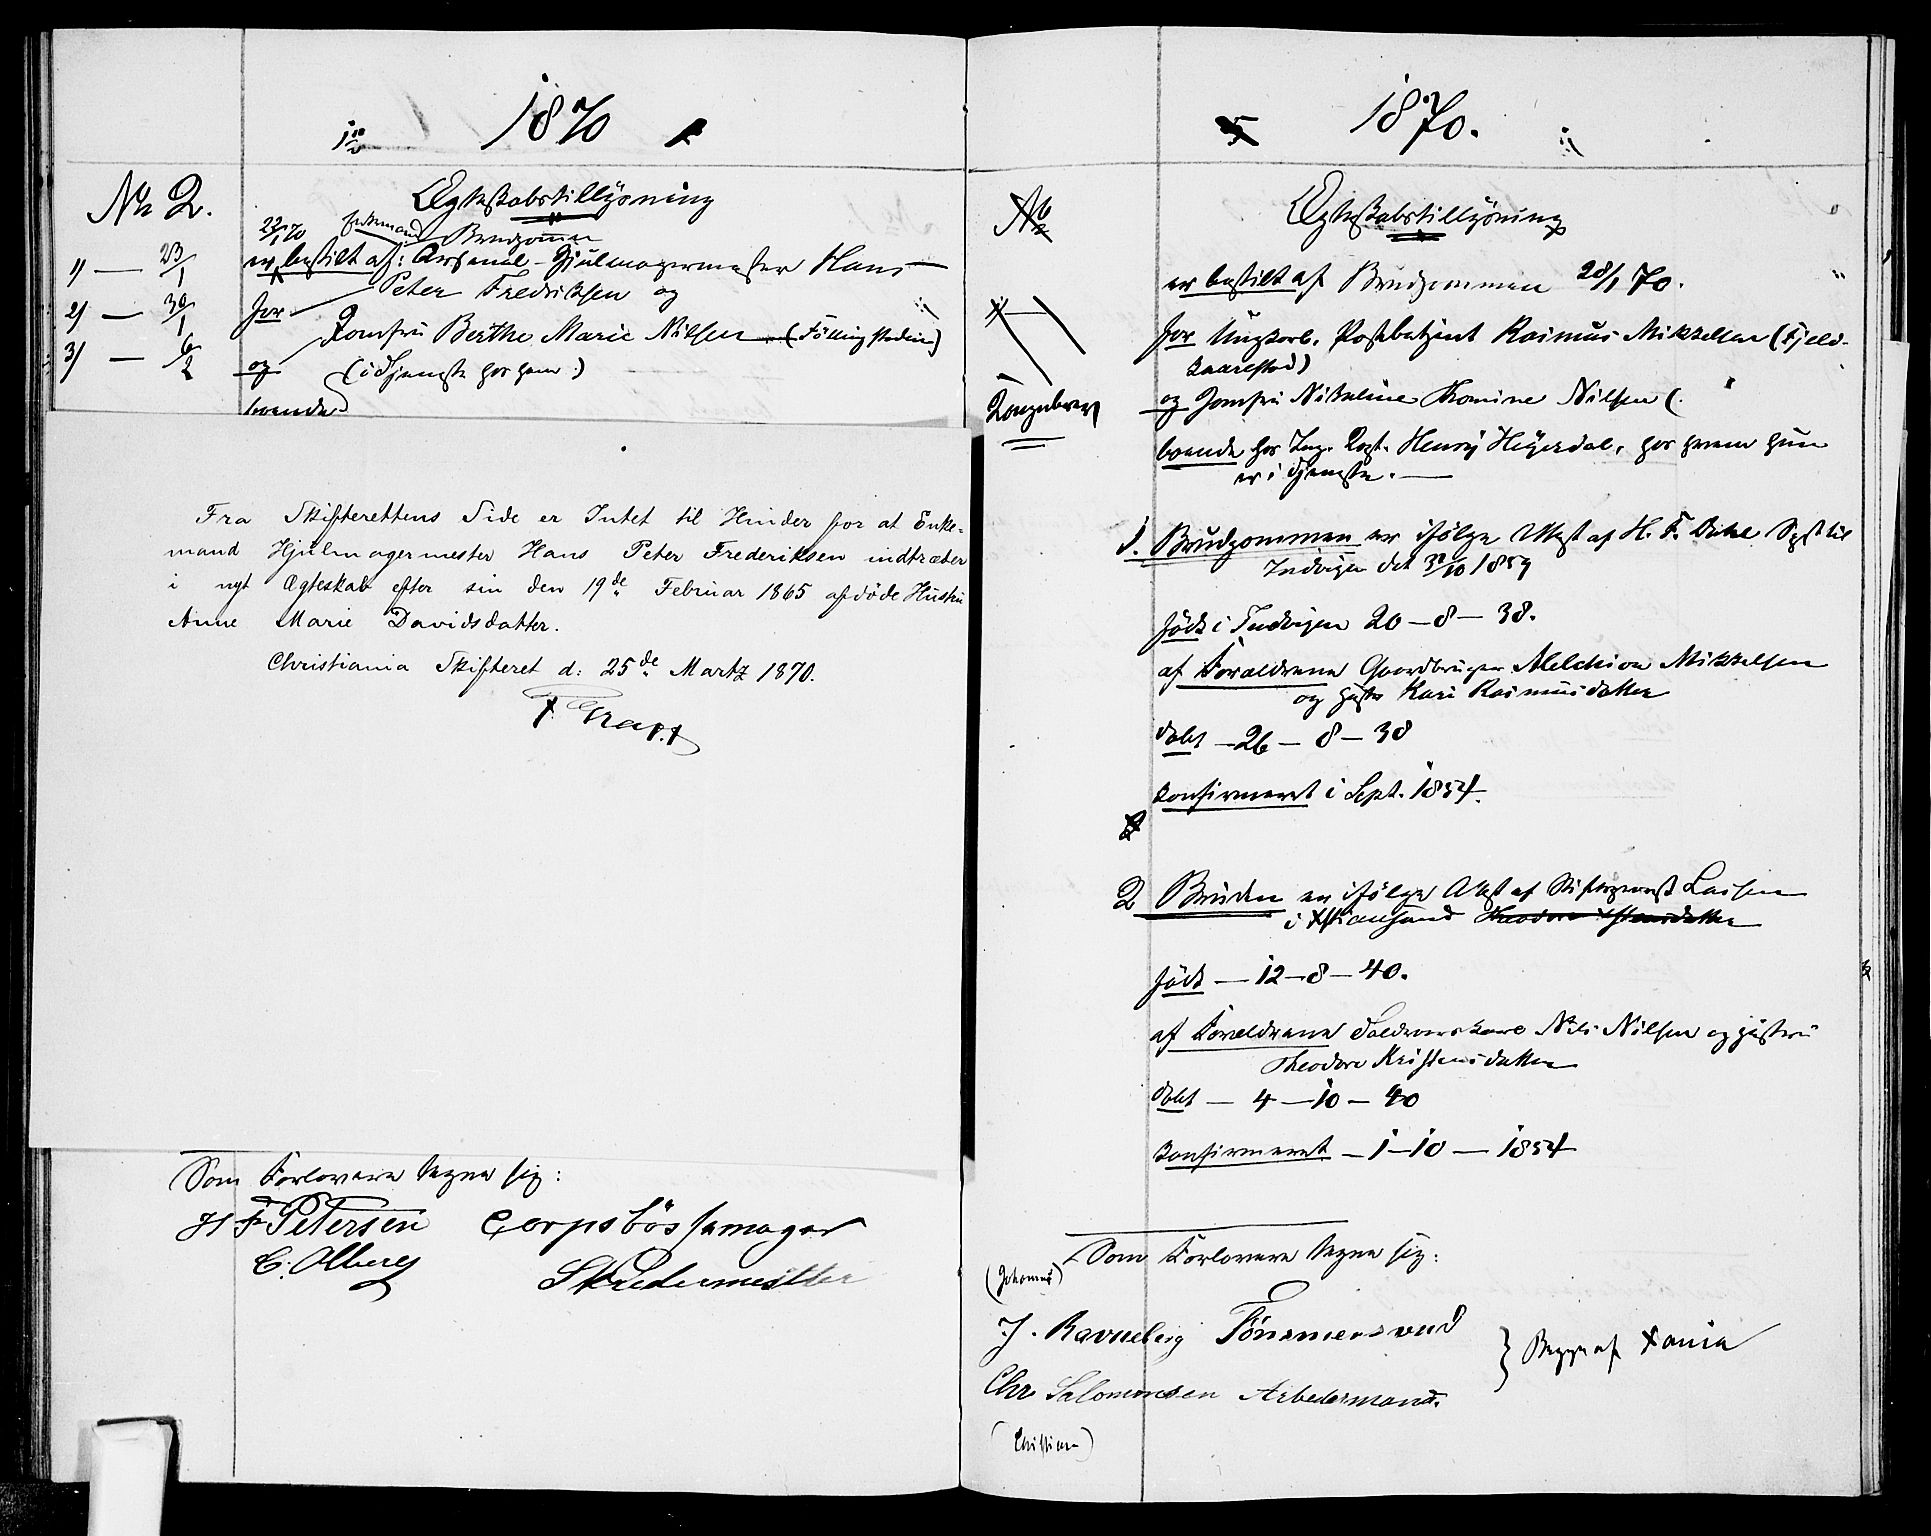 1870
No 2.
Ægteskabstillysning
22/1 70 Enkemand Brudgommen
1) — 23/1
er bestilt af: Arsenal-Hjulmagermester Hans
Peter Fredriksen og
2) — 30/1
for
Jomfru Berthe Marie Nilsen
3) — 6/2
og (i Tjeneste hos ham:)
boende
Fra Skifterettens Side er Intet til Hinder for at Enke-
mand Hjulmagermester Hans Peter Frederiksen indtræder
i nyt Ægteskab efter sin den 19de Februar 1865 afdøde Hustru
Anne Marie Davidsdatter.
Christiania Skifteret d: 25de Martz 1870.
Som Forlovere tegne sig:
H F Petersen Corpsbøssemager
C. Olberg Skredermester
1870.
Ægteskabstillysning
er bestilt af Brudgommen 28/1 70.
for Ungkarl. Postbetjent Rasmus Mikkelsen (Fjeld-
kaarstad)
og Jomfru Nikoline Thomine Nilsen (.
Kongebrev
boende hos Henrij Heyerdal, hos hvem hun
er i Tjeneste.
1. Brudgommen er ifølge Attest af H. F. Dahl Sgpst til
Indvigen dat 31/10 1859
født i Indvigen 20-8-38.
af Forældrene Gaardbruger Melchior Mikkelsen
og Hustru Kari Rasmusdatter
døbt - 26 - 8 - 38
konfirmeret i Sept. 1854.
2 Bruden er ifølge Attest af Stiftsprovst Lassen
i Xstiansand
født — 12-8-40.
af Forældrene Nils Nilsen og Hustru
Theodore Kristensdatter
døbt - 4 - 10 - 40
konfirmeret - 1-10 - 1854
Som Forlovere tegne sig:
(Johannes)
J. Ravneberg Tönsmensvend
Chr. Salomonsen Arbedermand.
} Begge af Xania
(Christian)